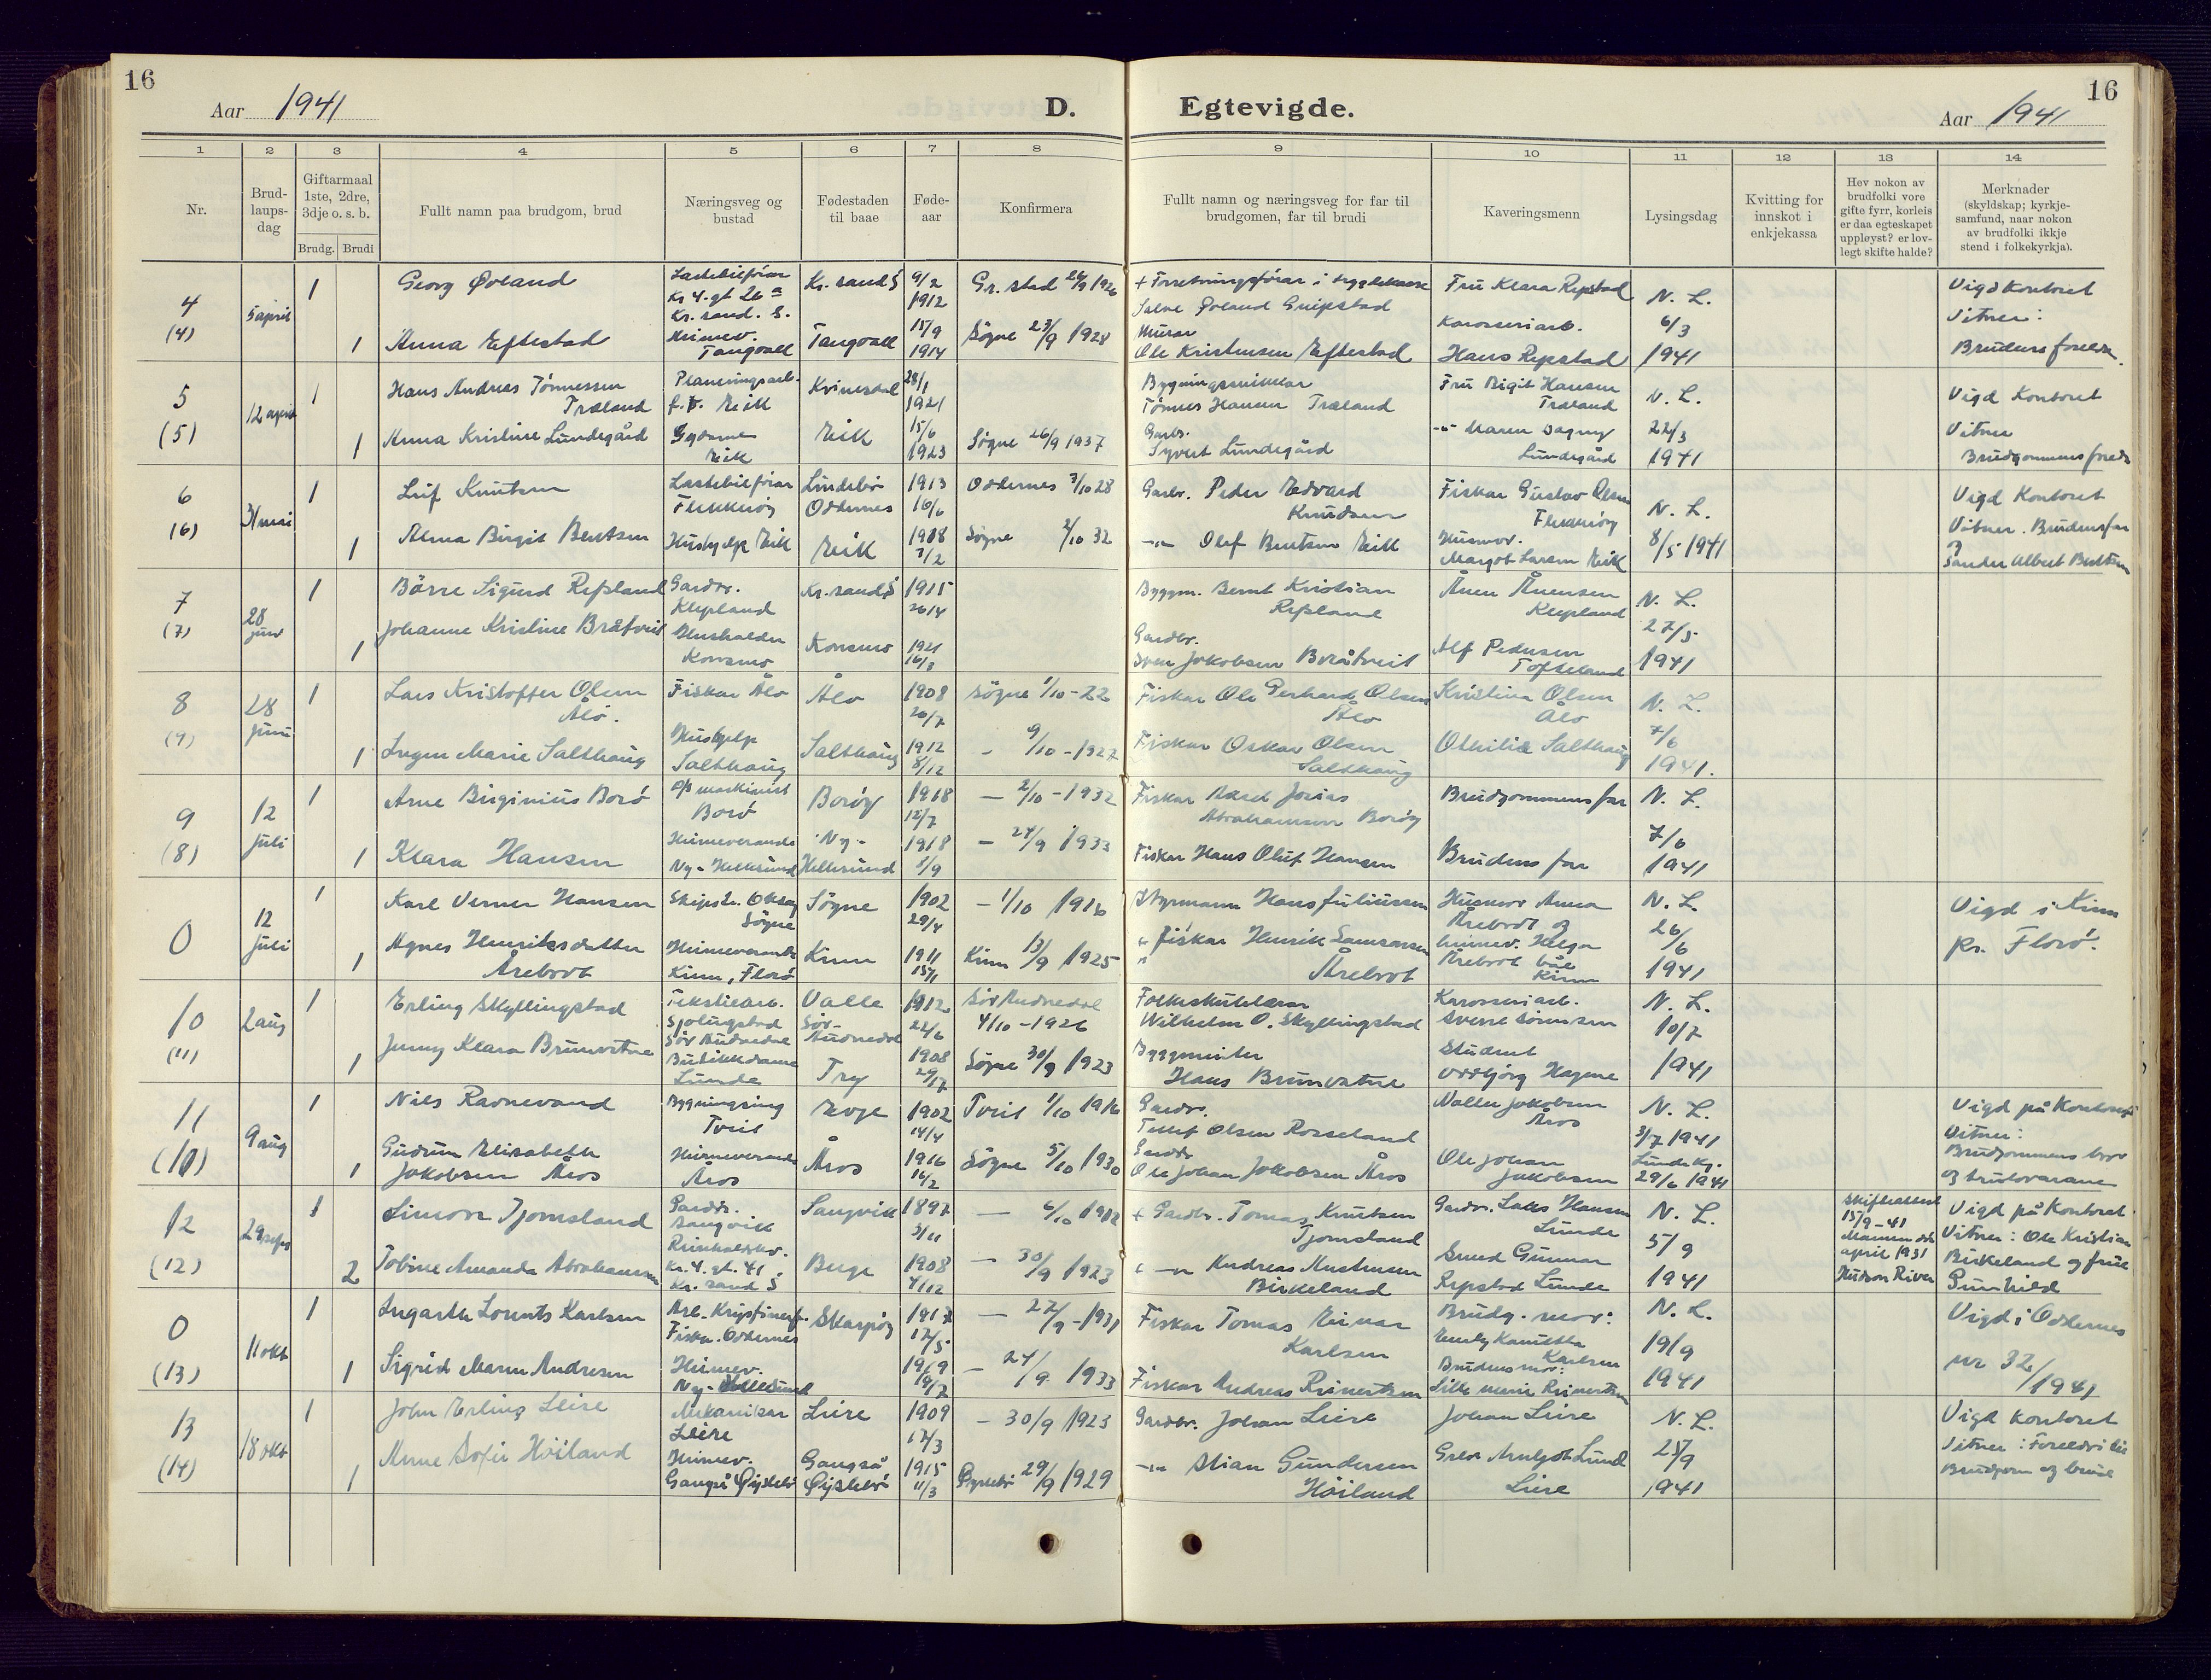 16
Aar 1941
D.
Egtevigde.
Aar 1941
16
1 2 3 4 5 6 7 8 9 10 11 12 13 14
Nr.
Brud-
laups-
dag
Giftarmaal
1ste, 2dre,
3dje o. s. b.
Brudg. Brudi
Fullt namn paa brudgom, brud
Næringsveg og
bustad
Fødestaden
til baae
Føde-
aar
Konfirmera
Fullt namn og næringsveg for far til
brudgomen, far til brudi
Kaveringsmenn
Lysingsdag
Kvitting for
innskot i
enkjekassa
Hev nokon av
brudfolki vore
gifte fyrr, korleis
er daa egteskapet
uppløyst? er lov-
legt skifte halde?
Merknader
(skyldskap; kyrkje-
samfund, naar nokon
av brudfolki ikkje
stend i folkekyrkja).
4
(4)
5 april
1
Georg Øvland
Lastebilförar
Kr 4. gt 26 a
Kr. sand. S.
Kr. sand S
9/2
1912
Gr. stad 26/9 1926
Salve Øvland Greipstad
Fru Klara Repstad
N. L.
6/3
1941
Vigd Kontoret
Vitner:
Brudens foreldre
1
Anna Eftestad
Heimev.
Tangvall
Tangvall
15/9
1914
Søgne 23/9 1928
Murar
Ole Kristensen Eftestad
Karosseriarb.
Hans Repstad
5
(5)
12 april
1
Hans Andreas Tönnessen
Træland
Planeringsarb.
Eik
Kvinesdal
28/1
1921
Bygningssnikkar
Tönnes Hansen Træland
Fru Birgit Hansen
Træland
N. L.
22/3
1941
Vigd Kontoret
Vitner
Brudgommens foreldre
1
Anna Kristine Lundegård
Sydame
Eik
Eik
15/6
1923
Søgne 26/9 1937
Garbr.
Syvert Lundegård
-"- Maren Dagny
Lundegård
6
(6)
31 mai
1
Leif Knutsen
Lastebilförar
Flekkerøy
Lindebø
Oddernes
1913
16/6
Oddernes 7/10 28
Garbr. Peder Edvard
Knudsen
Fiskar Gustav Olsen
Flekkerøy
N. L.
8/5 1941
Vigd Kontoret
Vitner. Brudens far
og
Sander Albert Bentsen
1
Alma Birgit Bentsen
Hushjelp Eik
Eik
1908
7/2
Søgne 2/10 32
-"- Olaf Bentsen Eik
Husmor.
Margot Larsen Eik
7
(7)
28
juni
1
Börre Sigurd Repland
Gardbr.
Klepland
Kr. sand S
1915
26/4
Byggm. Bernt Kristian
Repland
Ånen Ånensen
Klepland
N. L.
27/5
1941
1
Johanne Kristine Bråtveit
Husholder
Konsmo
Konsmo
1921
16/3
Gardbr.
Sven Jakobsen Bråtveit
Alf Pedersen
Tofteland
8
(9)
28
juni
1
Lars Kristoffer Olsen
Ålo.
Fiskar Ålo
Ålo
1908
20/7
Søgne 1/10-22
Fiskar Ole Gerhard Olsen
Ålo
Kristina Olsen
Ålo
N. L.
7/6
1941.
1
Inger Marie Salthaug
Hushjelp
Salthaug
Salthaug
1912
8/12
- 9/10-1927
Fiskar Oskar Olsen
Salthaug
Othilie Salthaug
9
(8)
12
juli
1
Arne Birginius Borø
maskinist
Borø
Borøy
1918
12/7
- 2/10-1932
Fiskar Aksel Josias
Abrahamsen Borøy
Brudgommens far
N. L.
7/6
1941
1
Klara Hansen
Heimeverande
Ny-Hellesund
Ny-
Hellesund
1918
5/9
- 24/9 1933
Fiskar Hans Oluf Hansen
Brudens far
0
12
juli
1
Karl Verner Hansen
Søgne
Søgne
1902
29/4
- 1/10 1916
Styrmann Hans Juliussen
Husmor Anna
Årebrot og
heimev. Helga
Årebrot båe
Kinn
N. L.
26/6
1941
Vigd i Kinn
pr. Florø.
1
Agnes Henriksdatter
Årebrot
Heimeverande
Kinn, Florø
Kinn
1911
15/1
Kinn 13/9 1925
Fiskar Henrik Samsonsen
Årebrot
10
(11)
2 aug
1
Erling Skyllingstad
Tekstilarb.
Sjølingstad
Sør Audnedal
Valle
Sør-
Audnedal
1912
22/6
Sør Audnedal
4/10-1926
Folkeskulelærar
Wilhelm O. Skyllingstad
Karosseriarb.
Sverre Sörensen
N. L.
10/7
1941
1
Jenny Klara Brunvatne
Butikkdame
Lunde
Try
1908
Søgne 30/9 1923
Byggmeister
Hans Brunvatne
Student
Oddbjörg Hagene
11
(10)
9 aug
1
Nils Ravnevand
Bygningsing
Tveit
Evje
1902
14/4
Tveit 1/10 1916
Gardbr.
Tellef Olsen Rosseland
Nalle Jakobsen
Åros
N. L.
3/7 1941
29/6 1941
Vigd på Kontoret
Vitner:
Brudgommens bror
1
Gudrun Elisabeth
Jakobsen Åros
Heimeverande
Åros
Åros
1916
16/2
Søgne 5/10 1930
Gardbr
Ole Johan Jakobsen Åros
Ole Johan
Jakobsen
12
(12)
29 sept
1
Simon Tjomsland
Gardbr.
Langvik
Langvik
1897
3/11
- 6/10 1912
+ Gardbr. Tomas Knutsen
Tjomsland
Gardbr. Laks Hansen
Lunde
N. L.
5/9
1941
Skifteattest
15/9-41
april 1931
Hudson River
Vigd på Kontoret
Vitner: Ole Kristian
Birkeland og frue
Gunhild
2
Tobine Amanda Abrahamsen
Kr. 4. gt. 41
Kr. sand S
Berge
1908
4/12
- 30/9 1923
Andreas Austensen
Birkeland
Smed Gunnar
Repstad Lunde
0
(13)
11 okt
1
Ingarth Lorents Karlsen
Fiskar. Oddernes
Skarpøy
1917
17/5
- 27/9-1931
Fiskar Tomas Einar
Karlsen
Brudg. mor:
Karlsen
N. L.
19/9
1941
Vigd i Oddernes
nr 32/1941
1
Sigrid Marie Andresen
Heimev.
Ny-Hellesund
1919
9/7
- 24/9 1933
Fiskar Andreas Reinertsen
Brudens mor:
Lilli Marie Reinertsen
13
(14)
18 okt
1
John Erling Leire
Mekanikar
Leire
Leire
1909
17/3
- 30/9 1923
Gardbr. Johan Leire
Johan Leire
N. L.
25/9
1941
Vigd kontoret
1
Anne Sofie Höiland
Heimev.
Gangså Øyslebø
Gangså
Øyslebø
1915
11/3
Øyslebø 29/9 1929
-"- Stian Gundersen
Höiland
Leire